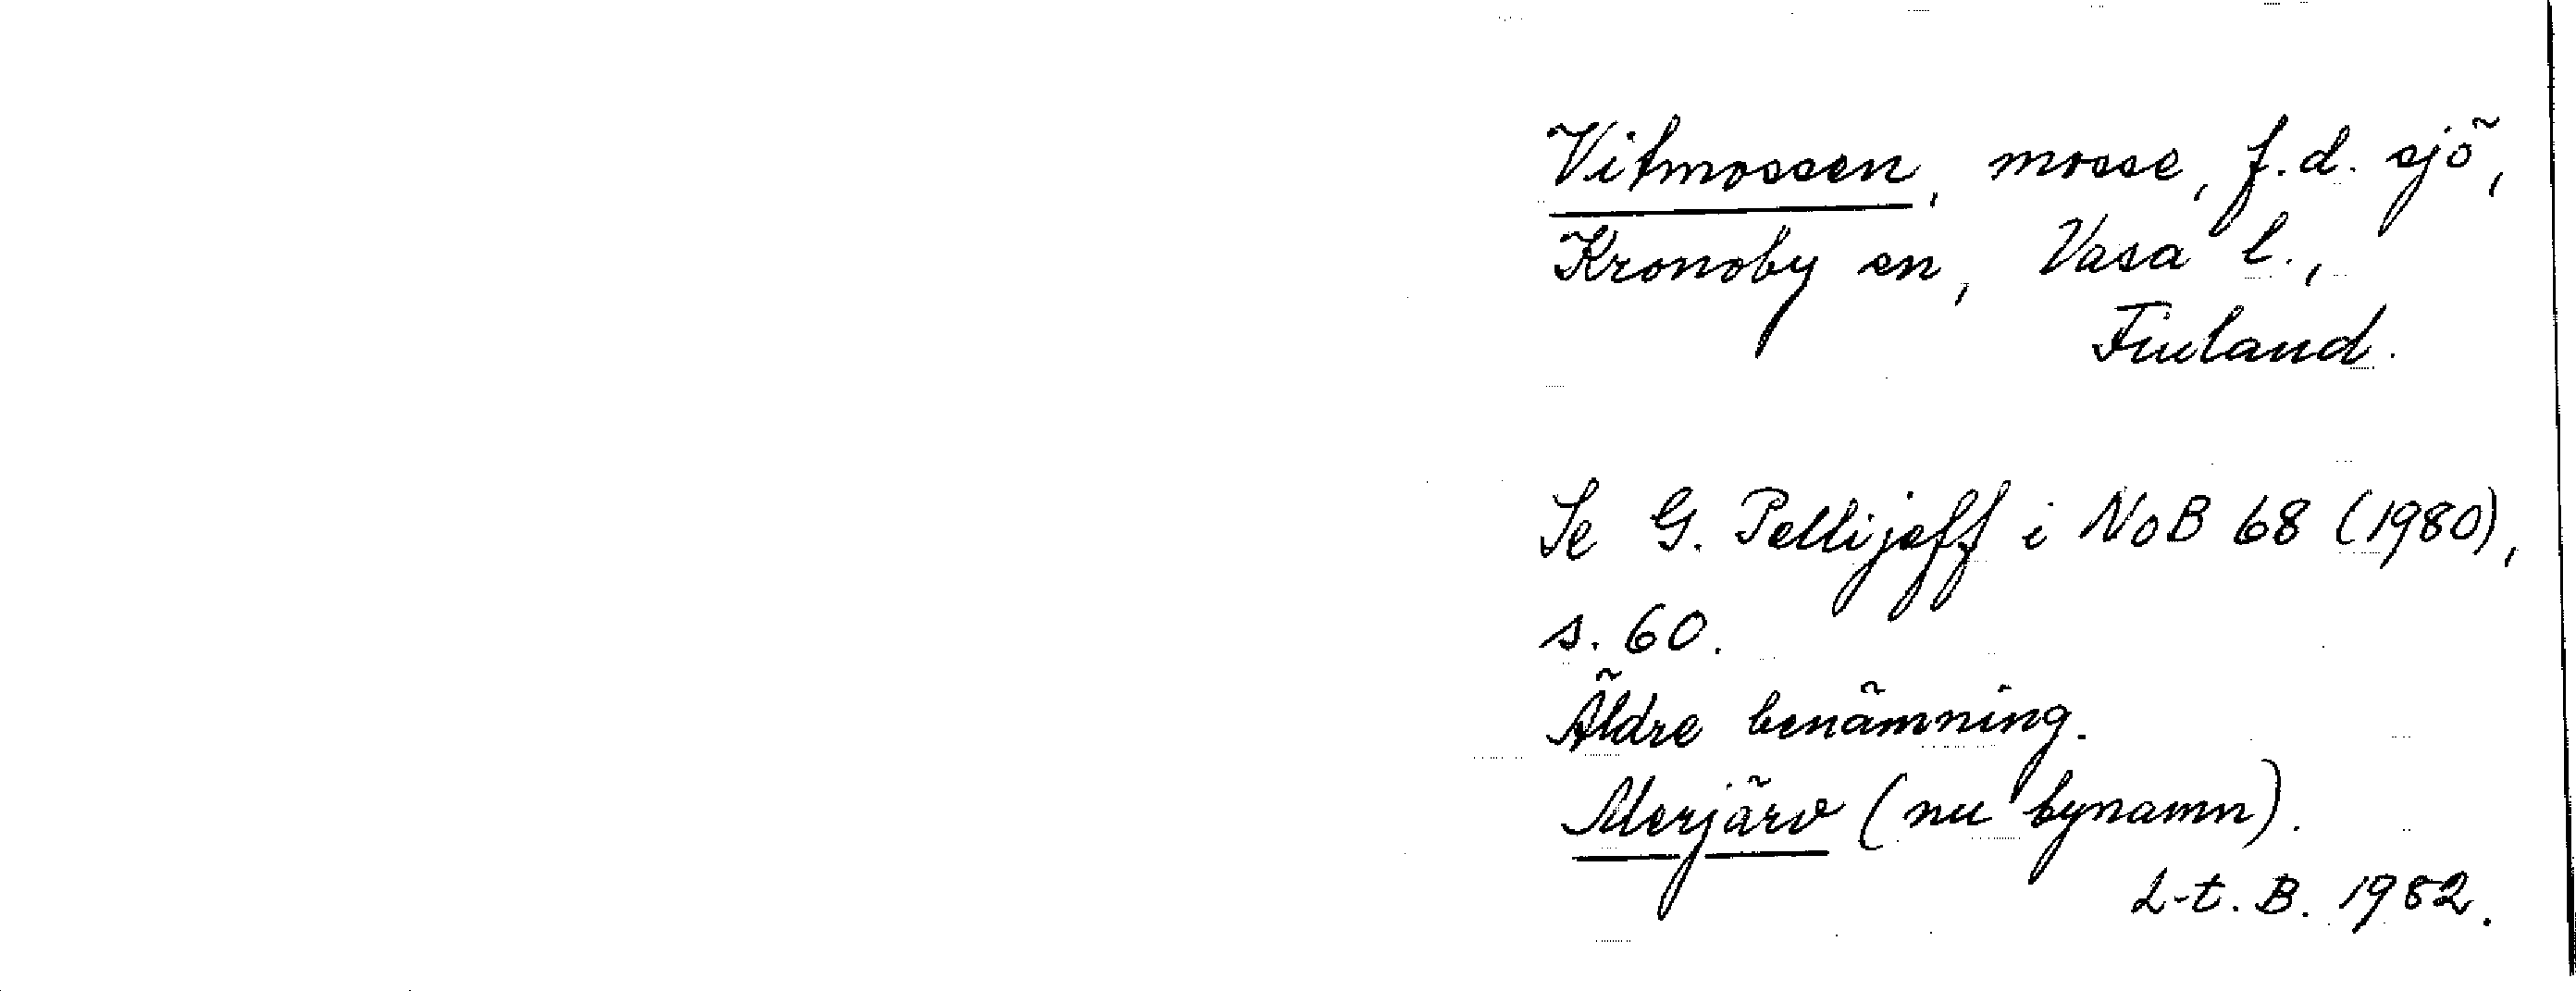 Vitmossen, mosse, f.d. sjö,
Kronoby sn, Vasa l.,
Finland.
Se G. Pellijeff i NoB 68 (1980),
s. 60.
Äldre benämning.
Merjärv (nu bynamn).
L-t. B. 1982.